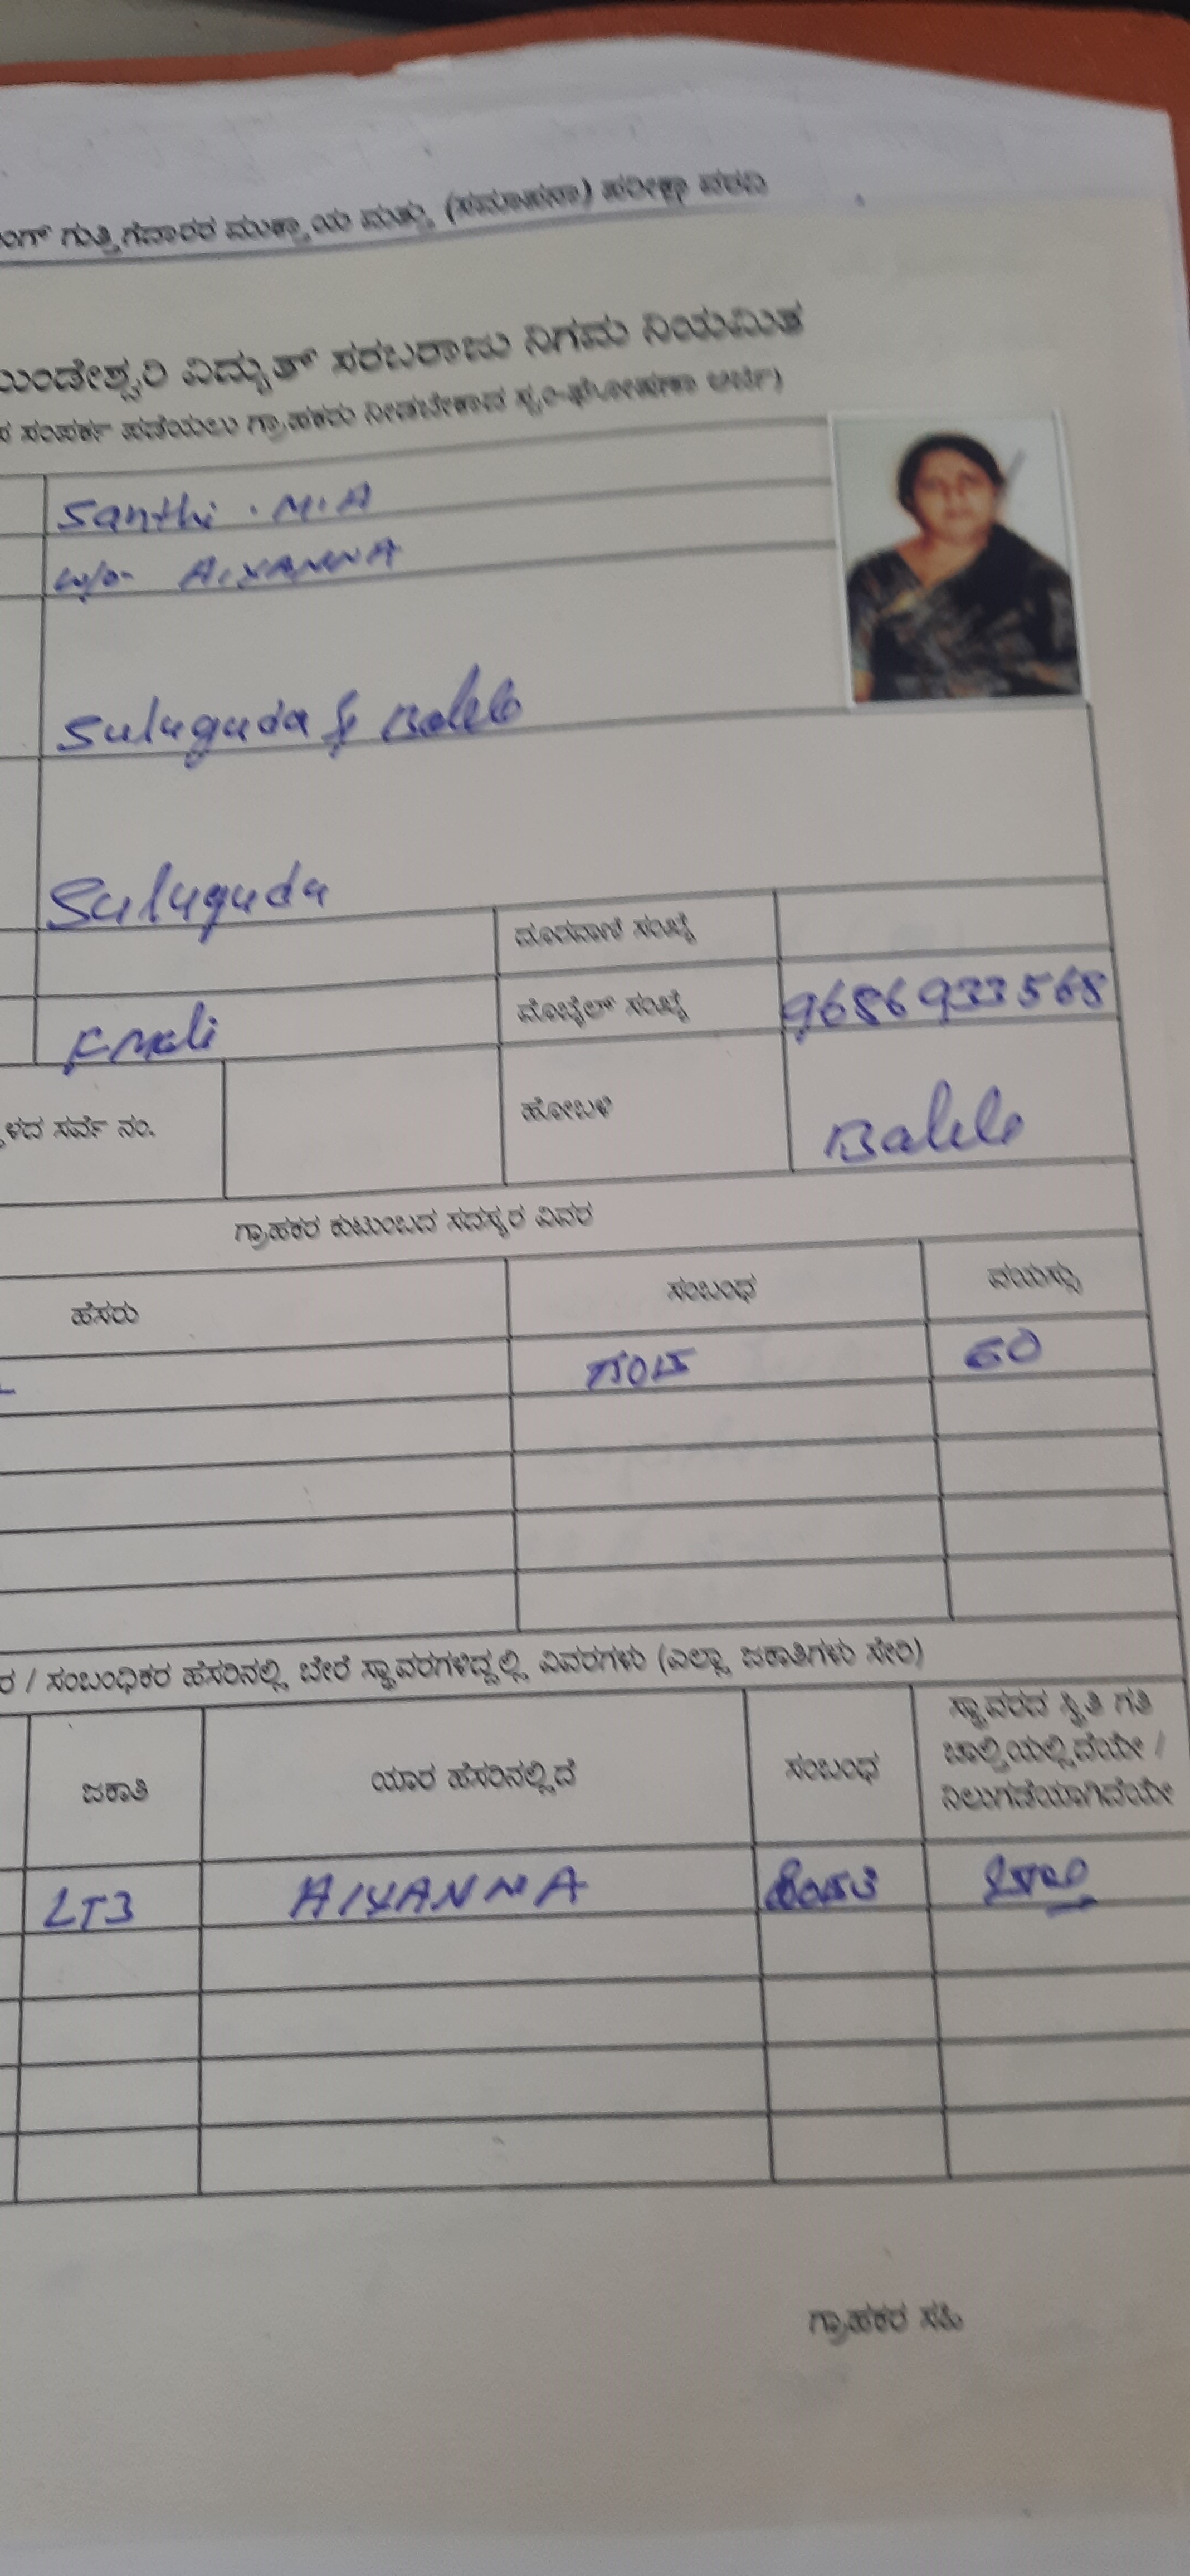 ಗುತ್ತಿಗೆದಾರರ ಮುಕ್ತಾಯ ಮತ್ತು (ಸಮಾಪನಾ) ಪರೀಕ್ಷಾ ವರದಿ
ವಿದ್ಯುತ್ ಸರಬರಾಜು ನಿಗಮ ನಿಯಮಿತ
ಸಂಪರ್ಕ ಪಡೆಯಲು ಗ್ರಾಹಕರು ನೀಡಬೇಕಾದ ಸ್ವಂ-ಘೋಷಣಾ ಅರ್ಜಿ)
Santhi . M.A
W/o- AIYANNA
Suluguda & Balele
Suluguda
ದೂರವಾಣಿ ಸಂಖ್ಯೆ
ಮೊಬೈಲ್ ಸಂಖ್ಯೆ 9686933568
ಸರ್ವೆ ನಂ. ಹೋಬಳಿ Balele
ಗ್ರಾಹಕರ ಕುಟುಂಬದ ಸದಸ್ಯರ ವಿವರ
ಹೆಸರು ಸಂಬಂಧ ವಯಸ್ಸು
ಗಂಡ 60
/ ಸಂಬಂಧಿಕರ ಹೆಸರಿನಲ್ಲಿ ಬೇರೆ ಸ್ಥಾವರಗಳಿದ್ದಲ್ಲಿ ವಿವರಗಳು (ಎಲ್ಲಾ ಜಕಾತಿಗಳು ಸೇರಿ)
ಜಕಾತಿ ಯಾರ ಹೆಸರಿನಲ್ಲಿದೆ ಸಂಬಂಧ ಸ್ಥಾವರದ ಸ್ಥಿತಿ ಗತಿ
ಚಾಲ್ತಿಯಲ್ಲಿದೆಯೇ /
ನಿಲುಗಡೆಯಾಗಿದೆಯೇ
LT3 AIYANNA
ಗ್ರಾಹಕರ ಸಹಿ